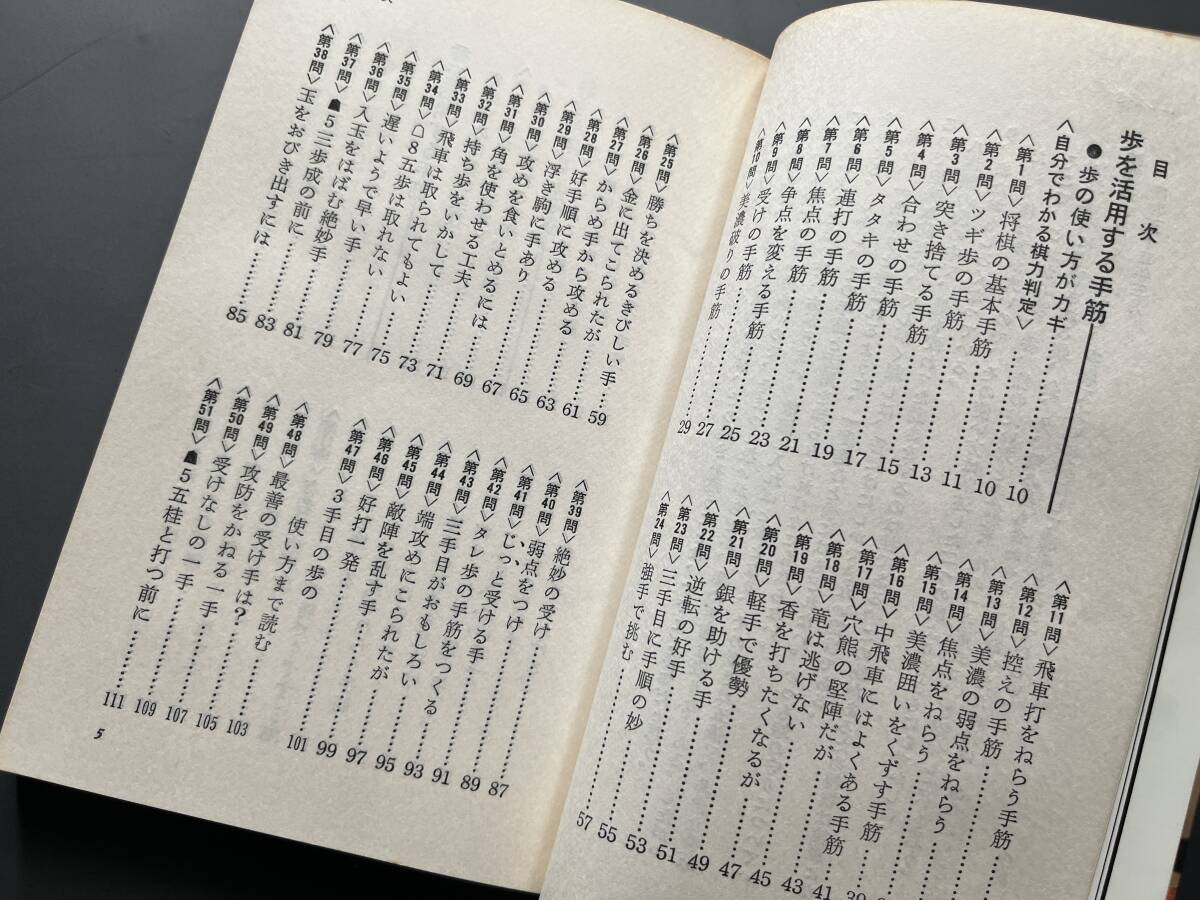 目次
歩を活用する手筋
●歩の使い方がカギ……10
〈自分でわかる棋力判定〉……10
〈第1問〉将棋の基本手筋……11
〈第2問〉ツギ歩の手筋……13
〈第3問〉突き捨てる手筋……15
〈第4問〉合わせの手筋……17
〈第5問〉タタキの手筋……19
〈第6問〉連打の手筋……21
〈第7問〉焦点の手筋……23
〈第8問〉争点を変える手筋……25
〈第9問〉受けの手筋……27
〈第10問〉美濃破りの手筋……29
〈第11問〉飛車打をねらう手筋……
〈第12問〉控えの手筋……
〈第13問〉美濃の弱点をねらう……
〈第14問〉焦点をねらう……
〈第15問〉美濃囲いをくずす手筋……39
〈第16問〉中飛車にはよくある手筋……41
〈第17問〉穴熊の堅陣だが……43
〈第18問〉竜は逃げない……45
〈第19問〉香を打ちたくなるが……47
〈第20問〉軽手で優勢……49
〈第21問〉銀を助ける手……51
〈第22問〉逆転の好手……53
〈第23問〉三手目に手順の妙……55
〈第24問〉強手で挑む……57
〈第25問〉勝ちを決めるきびしい手……59
〈第26問〉金に出てこられたが……61
〈第27問〉からめ手から攻める……63
〈第28問〉好手順に攻める……65
〈第29問〉浮き駒に手あり……67
〈第30問〉攻めを食いとめるには……69
〈第31問〉角を使わせる工夫……71
〈第32問〉持ち歩をいかして……73
〈第33問〉飛車は取られてもよい……75
〈第34問〉☖8五歩は取れない……77
〈第35問〉遅いようで早い手……79
〈第36問〉入玉をはばむ絶妙手……81
〈第37問〉☗5三歩成の前に……83
〈第38問〉玉をおびき出すには……85
〈第39問〉絶妙の受け……87
〈第40問〉弱点をつけ……89
〈第41問〉じっと受ける手……91
〈第42問〉タレ歩の手筋をつくる……93
〈第43問〉三手目がおもしろい……95
〈第44問〉端攻めにこられたが……97
〈第45問〉敵陣を乱す手……99
〈第46問〉好打一発……101
〈第47問〉3手目の歩の
使い方まで読む……103
〈第48問〉最善の受け手は?……105
〈第49問〉攻防をかねる一手……107
〈第50問〉受けなしの一手……109
〈第51問〉☗5五桂と打つ前に……111
5